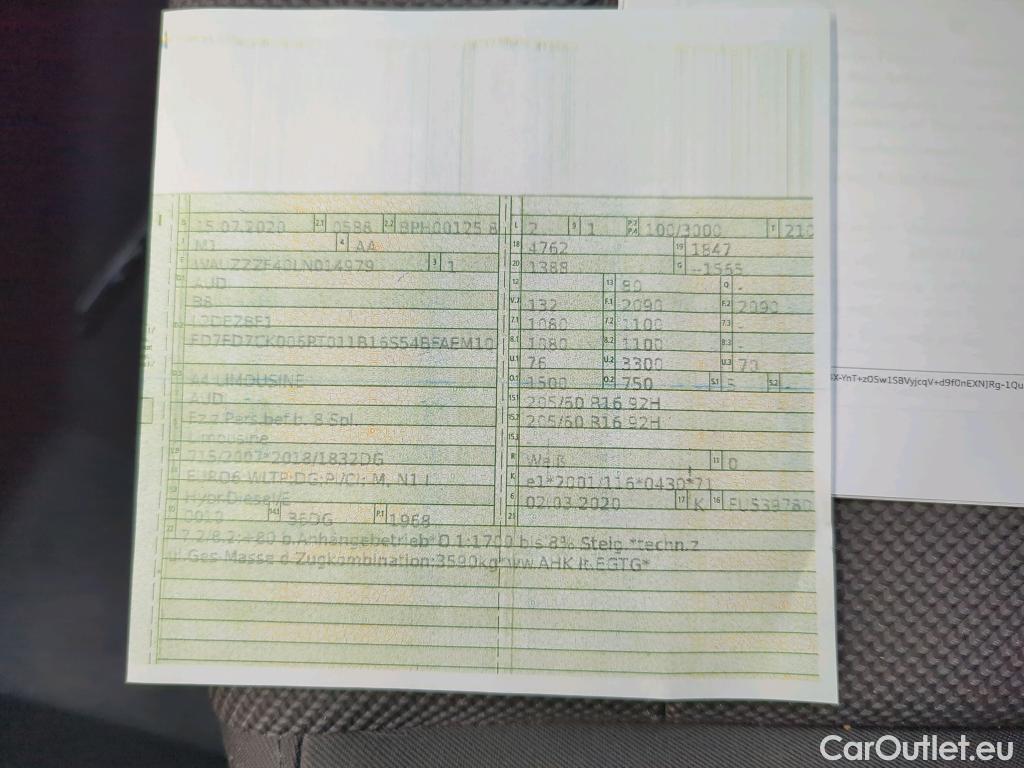 B 15.07.2020 2.1 0588 2.2 BPH00125 8
J M1 4 AA
E WAUZZZF40LN014979 3 1
AUDI
B8
ED7ED7CK006PT011B16S54BFAEM10
A4 LIMOUSINE
AUDI
Fz.z.Pers.bef.b. 8 Spl.
Limousine
715/2007*2018/1832DG
EURO6 WLTP;DG;PI/CI; M, N1 I
Hybr.Diesel/E
14.1 36DG P.1 1968
L 2 9 1 P.2 P.4 100/3000 T 210
18 4762 19 1847
20 1388 G --1565
12 - 13 80 Q -
V.7 132 F.1 2090 F.2 2090
7.1 1080 7.2 1100 7.3 -
8.1 1080 8.2 1100 8.3 -
U.1 76 U.2 3300 U.3 70
O.1 1500 O.2 750 S.1 5 S.2 -
15.1 205/60 R16 92H
15.2 205/60 R16 92H
15.3
R Weiß 11 0
K e1*2001/116*0430*71
6 02.03.2020 17 K 16
21
7.2/8.2:+80 b.Anhängebetrieb*O.1:1700 bis 8% Steig.*techn.z
ul.Ges.Masse d.Zugkombination:3590kg*ww.AHK lt.EGTG*
CarOutlet.eu